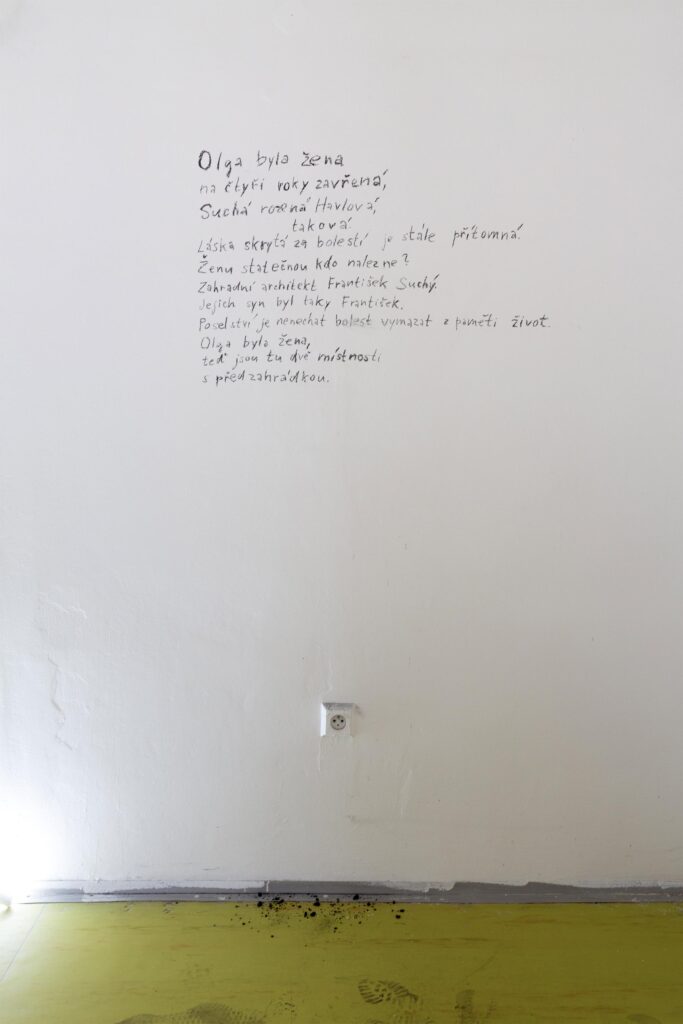 Olga byla žena
na čtyři roky zavřená,
Suchá rozená Havlová,
taková.
Láska skrytá za bolestí je stále přítomná.
Ženu statečnou kdo nalezne?
Zahradní architekt František Suchý.
Jejich syn byl taky František.
Poselství je nenechat bolest vymazat z paměti život.
Olga byla žena,
teď jsou tu dvě místnosti
s předzahrádkou.